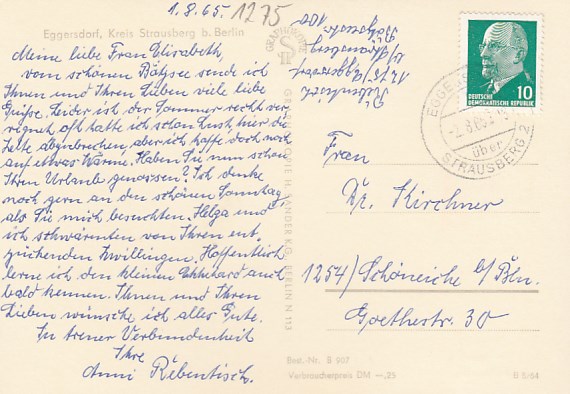 1.8.65.
1275
Eggersdorf, Kreis Strausberg b. Berlin
Meine liebe Frau Elisabeth,
vom schönen Bötzsee sende ich
Ihnen und Ihren Lieben viele liebe
Grüße. Leider ist der Sommer recht ver-
regnet, oft hatte ich schon Lust, hier die
Zelte abzubrechen, aber ich hoffe doch noch
auf etwas Wärme. Haben Sie nun schon
Ihren Urlaub genossen? Ich denke
noch gern an den schönen Sonntag,
als Sie mich besuchten. Helga und
ich schwärmten von Ihren ent-
zückenden Zwillingen. Hoffentlich
lerne ich den kleinen Ekkhard auch
bald kennen. Ihnen und Ihren
Lieben wünsche ich alles Gute.
In treuer Verbundenheit
Ihre
Anni Rebentisch.
Rebentisch
Eggersdorf
Bötzseestr. 100
GRAPHOKOPIE
H S
GRAPHOKOPIE H. SANDER KG. BERLIN N 113
DEUTSCHE
DEMOKRATISCHE REPUBLIK
10
-2.8.65
über
STRAUSBERG 2
Frau
Dr. Kirchner
1254) Schöneiche b/Bln.
Goethestr. 30
Best.-Nr. B 907
Verbraucherpreis DM —,25
B 5/64